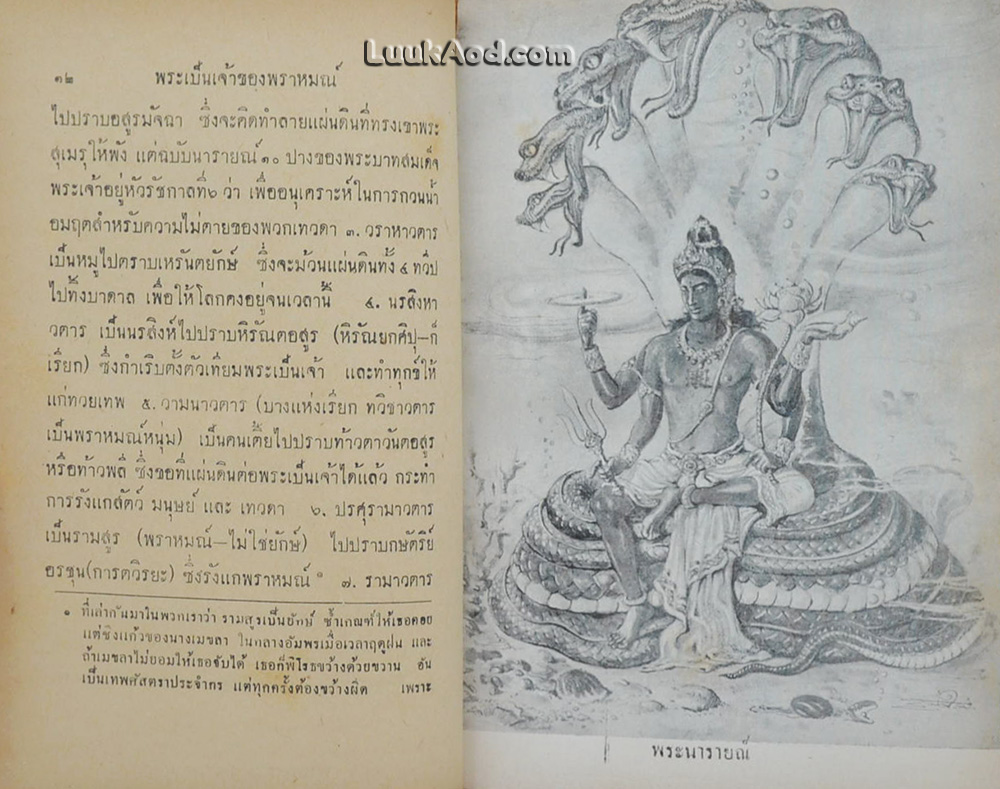 LuukAod.com
๓๒ พระเป็นเจ้าของพราหมณ์
ไปปราบอสูรมัจฉา ซึ่งจะคิดทำลายแผ่นดินที่ทรงเขาพระ
สุเมรุให้พัง แต่ฉบับนารายณ์ ๑๐ ปางของพระบาทสมเด็จ
พระเจ้าอยู่หัวรัชกาลที่๖ ว่า เพื่ออนุเคราะห์ในการกวนน้ำ
อมฤตสำหรับความไม่ตายของพวกเทวดา ๓. วราหาวตาร
เป็นหมูไปตราบเหรันตยักษ์ ซึ่งจะม้วนแผ่นดินทั้ง ๔ ทวีป
ไปทิ้งบาดาล เพื่อให้โลกคงอยู่จนเวลานี้ ๔. นรสิงหา
วตาร เป็นนรสิงห์ไปปราบหิรัณตอสูร (หิรัณยกศิปุ–ก็
เรียก) ซึ่งกำเริบตั้งตัวเทียมพระเป็นเจ้า และทำทุกข์ให้
แก่ทวยเทพ ๕. วามนาวตาร (บางแห่งเรียก ทวิชาวตาร
เป็นพราหมณ์หนุ่ม) เป็นคนเตี้ยไปปราบท้าวตาวันตอสูร
หรือท้าวพลี ซึ่งขอที่แผ่นดินต่อพระเป็นเจ้าได้แล้ว กระทำ
การรังแกสัตว์ มนุษย์ และ เทวดา ๖. ปรศุรามาวตาร
เป็นรามสูร (พราหมณ์–ไม่ใช่ยักษ์) ไปปราบกษัตริย์
อรชุน(การตวิรยะ) ซึ่งรังแกพราหมณ์ ๑ ๗. รามาวตาร
๑ ที่เล่ากันมาในพวกเราว่า รามสูรเป็นยักษ์ ซ้ำเกณฑ์ให้เธอคอย
แต่ชิงแก้วของนางเมขลา ในกลางอัมพรเมื่อเวลาฤดูฝน และ
ถ้าเมขลาไม่ยอมให้เธอจับได้ เธอก็พิโรธขว้างด้วยขวาน อัน
เป็นเทพศัสตราประจำกร แต่ทุกครั้งต้องขว้างผิด เพราะ
พระนารายณ์